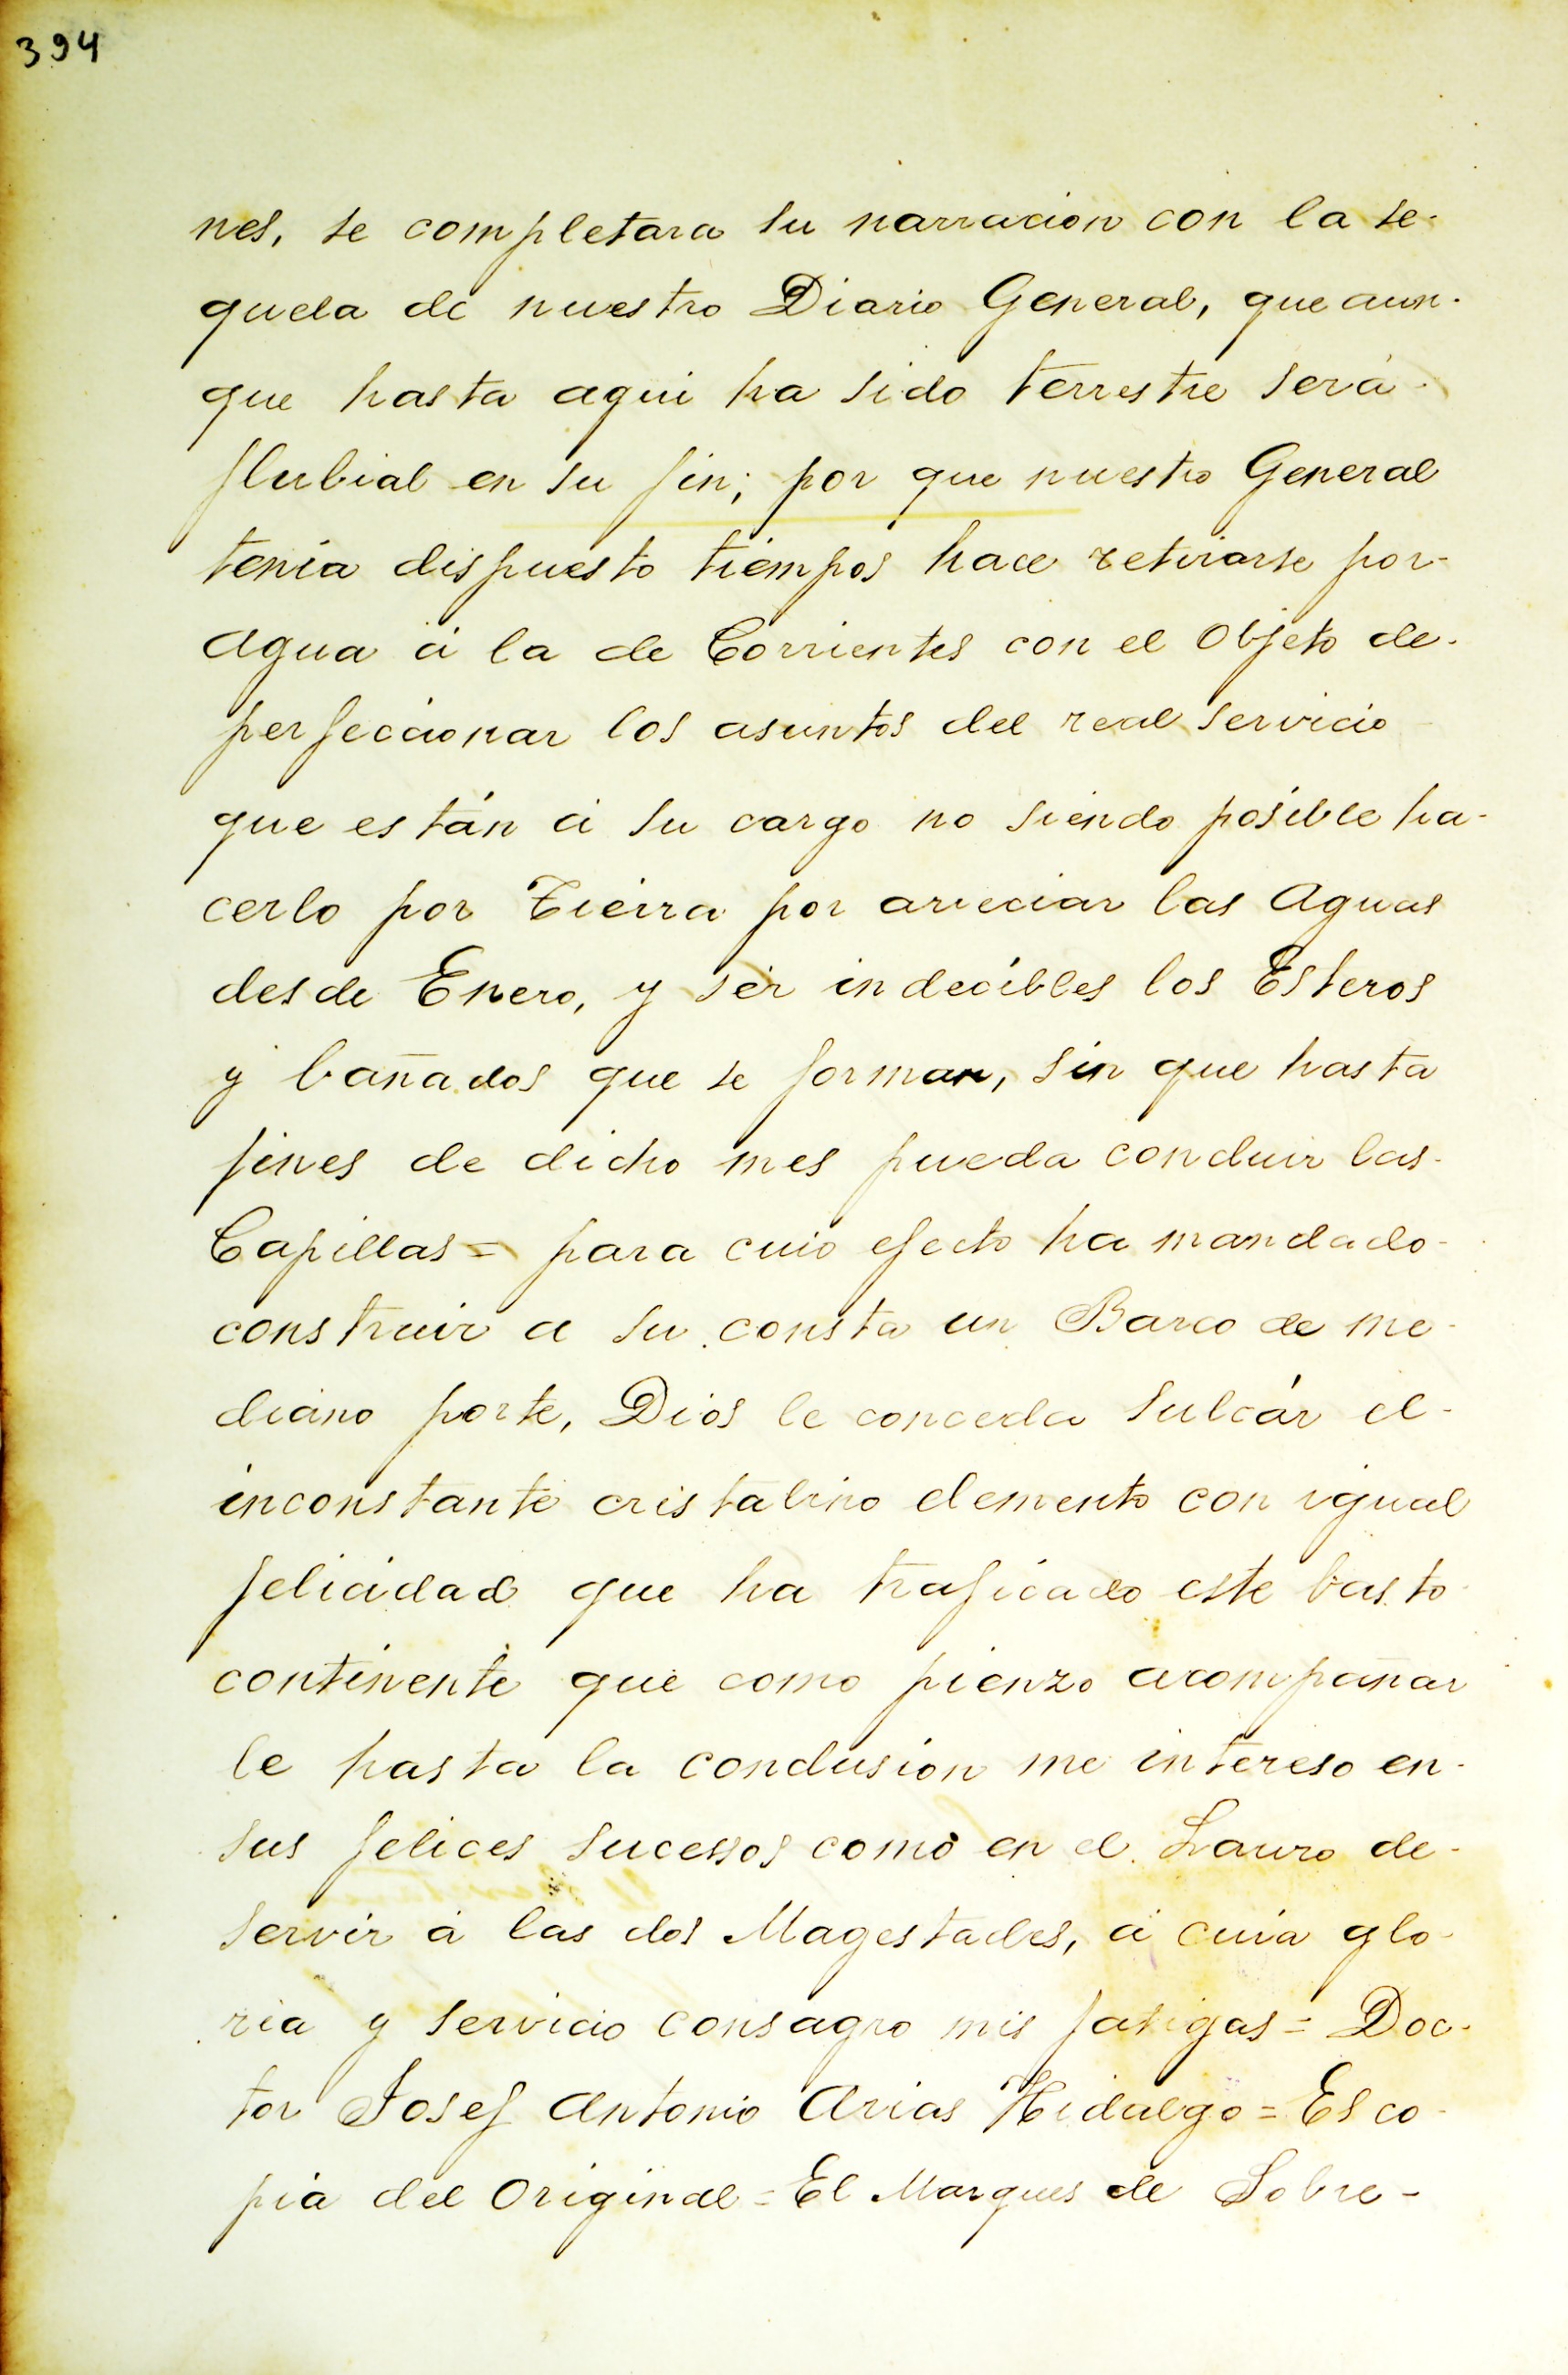 394
nes, se completara su narracion con la se-
quela de nuestro Diario General, que aun-
que hasta aqui ha sido terrestre será
flubial en su fin; por que nuestro General
tenia dispuesto tiempos hace retirarse por-
agua á la de Corrientes con el Objeto de-
perfeccionar los asuntos del real servicio
que están á su cargo no siendo posible ha-
cerlo por Tierra por arreciar las Aguas
desde Enero, y ser indecibles los Esteros
y bañados que se forman, sin que hasta
fines de dicho mes pueda concluir las-
Capillas = para cuio efecto ha mandado-
construir a su consta un Barco de me-
diano porte, Dios le conceda sulcár el-
inconstante cristalino elemento con igual
felicidad que ha traficado este basto
continente que como pienzo acompañar
le hasta la conclusion me intereso en-
sus felices sucessos como en el Lauro de-
servir á las dos Magestades, á cuia glo-
ria y servicio consagro mis fatigas = Doc-
tor Josef Antonio Arias Hidalgo = Es co-
pia del Original = El Marques de Sobre-